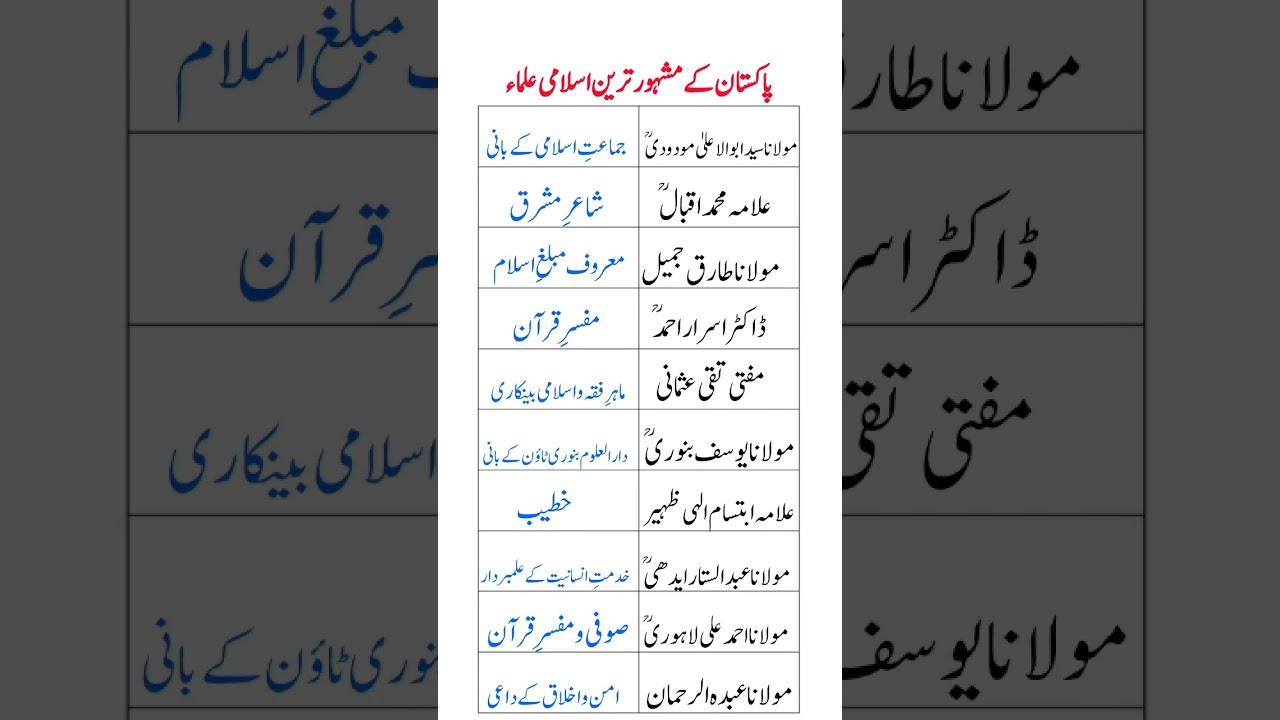 پاکستان کے مشہور ترین اسلامی علماء
مولانا سید ابوالاعلیٰ مودودیؒ جماعتِ اسلامی کے بانی
علامہ محمد اقبالؒ شاعرِ مشرق
مولانا طارق جمیل معروف مبلغِ اسلام
ڈاکٹر اسرار احمدؒ مفسرِ قرآن
مفتی تقی عثمانی ماہرِ فقہ و اسلامی بینکاری
مولانا یوسف بنوریؒ دارالعلوم بنوری ٹاؤن کے بانی
علامہ ابتسام الہی ظہیر خطیب
مولانا عبدالستار ایدھیؒ خدمتِ انسانیت کے علمبردار
مولانا احمد علی لاہوریؒ صوفی و مفسرِ قرآن
مولانا عبدہ الرحمان امن و اخلاق کے داعی